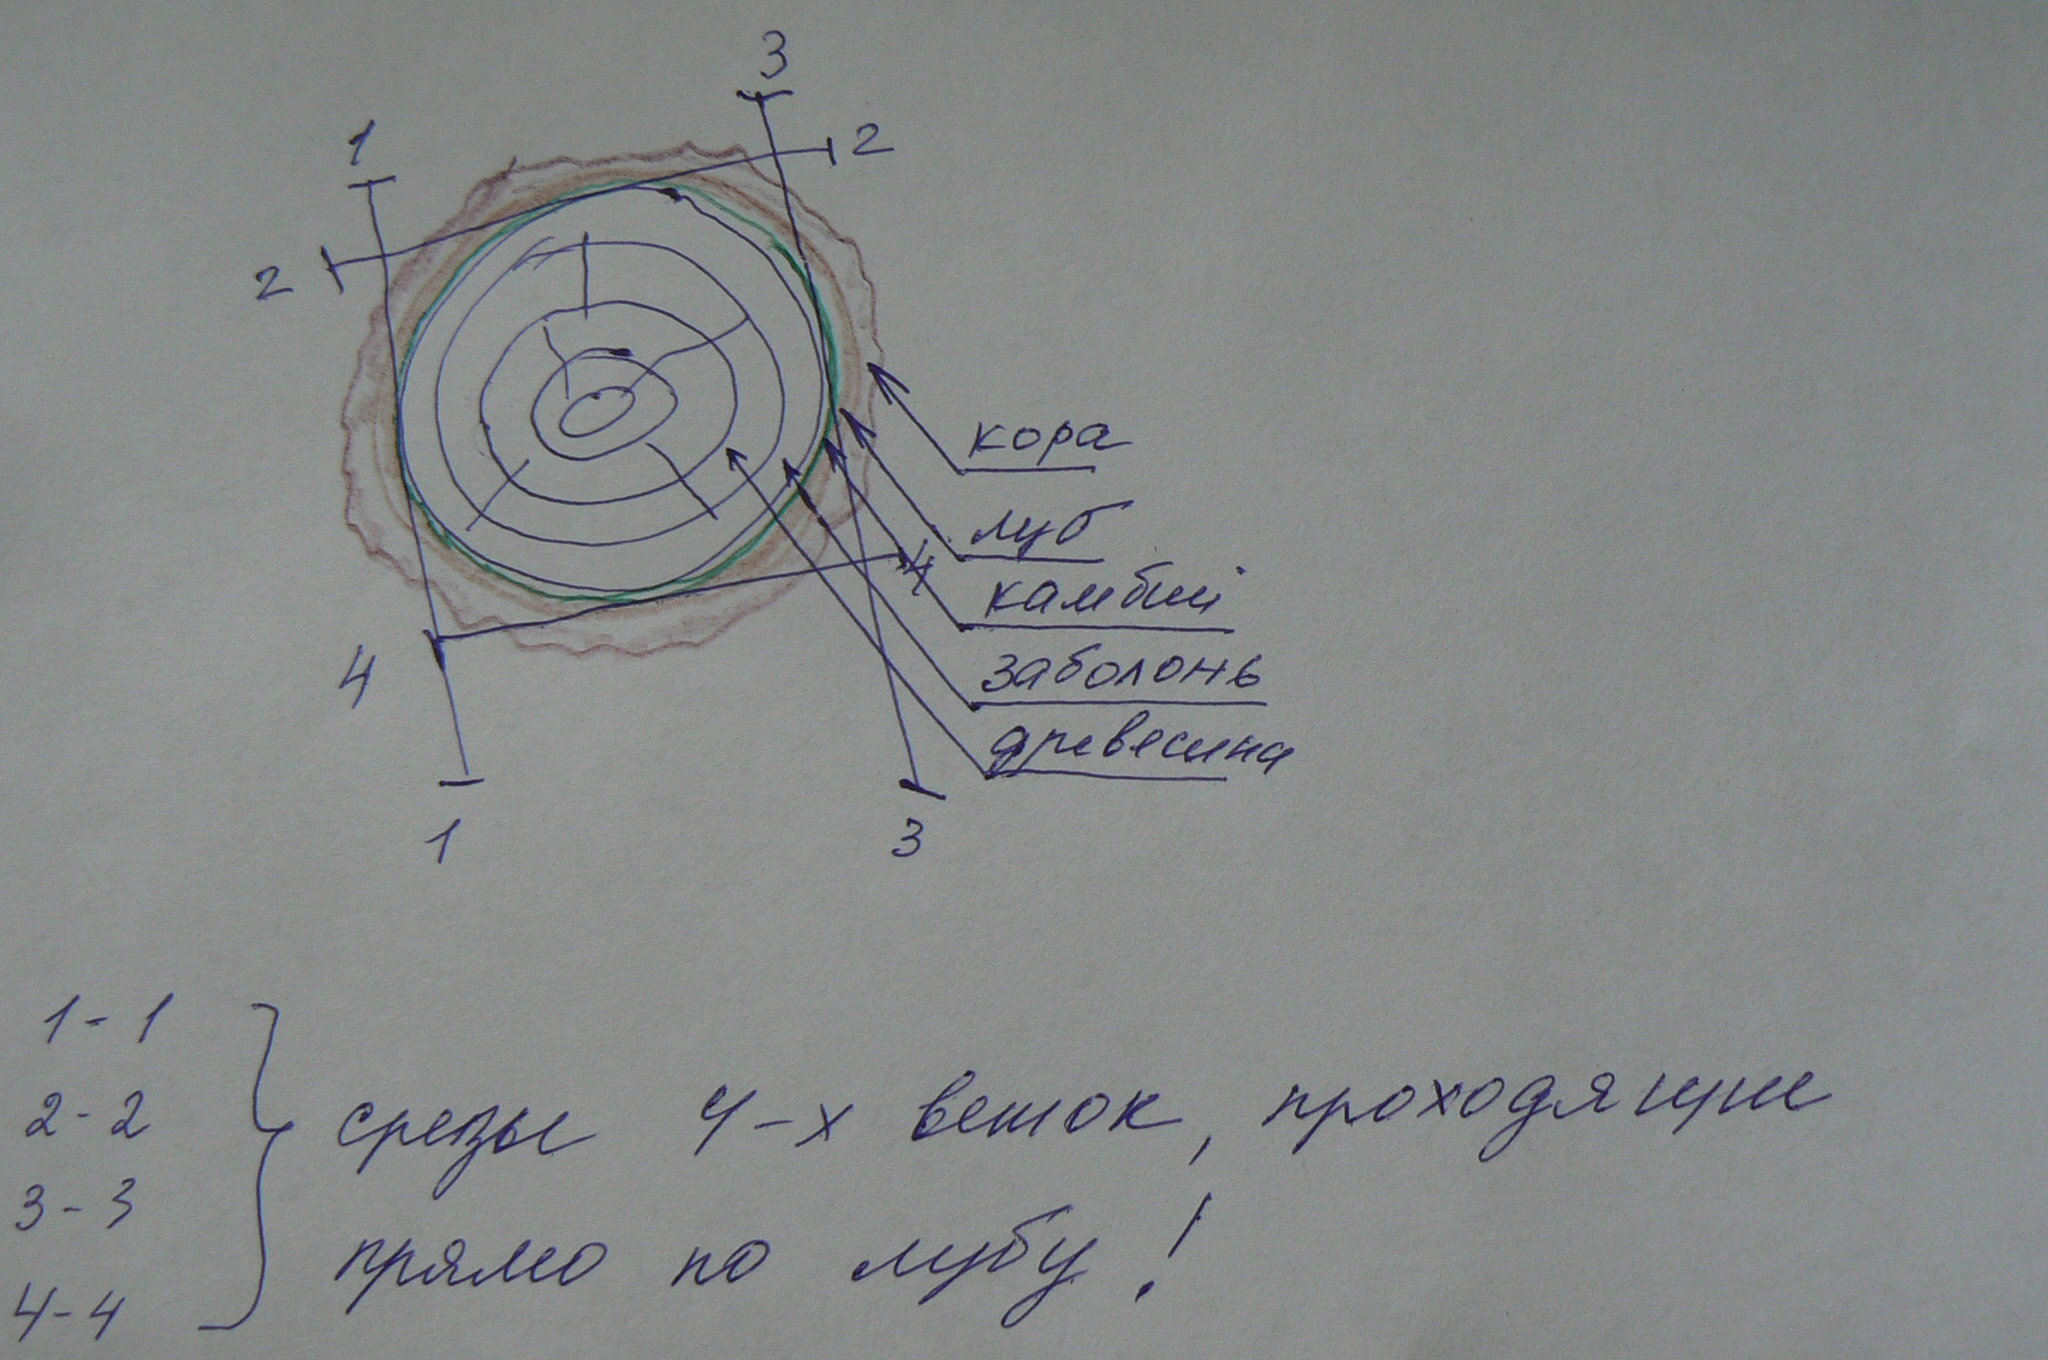 3
1
2
2
кора
луб
4
камбий
заболонь
4
древесина
1
3
1-1
2-2
срезы 4-х веток, проходящие
3-3
прямо по лубу!
4-4